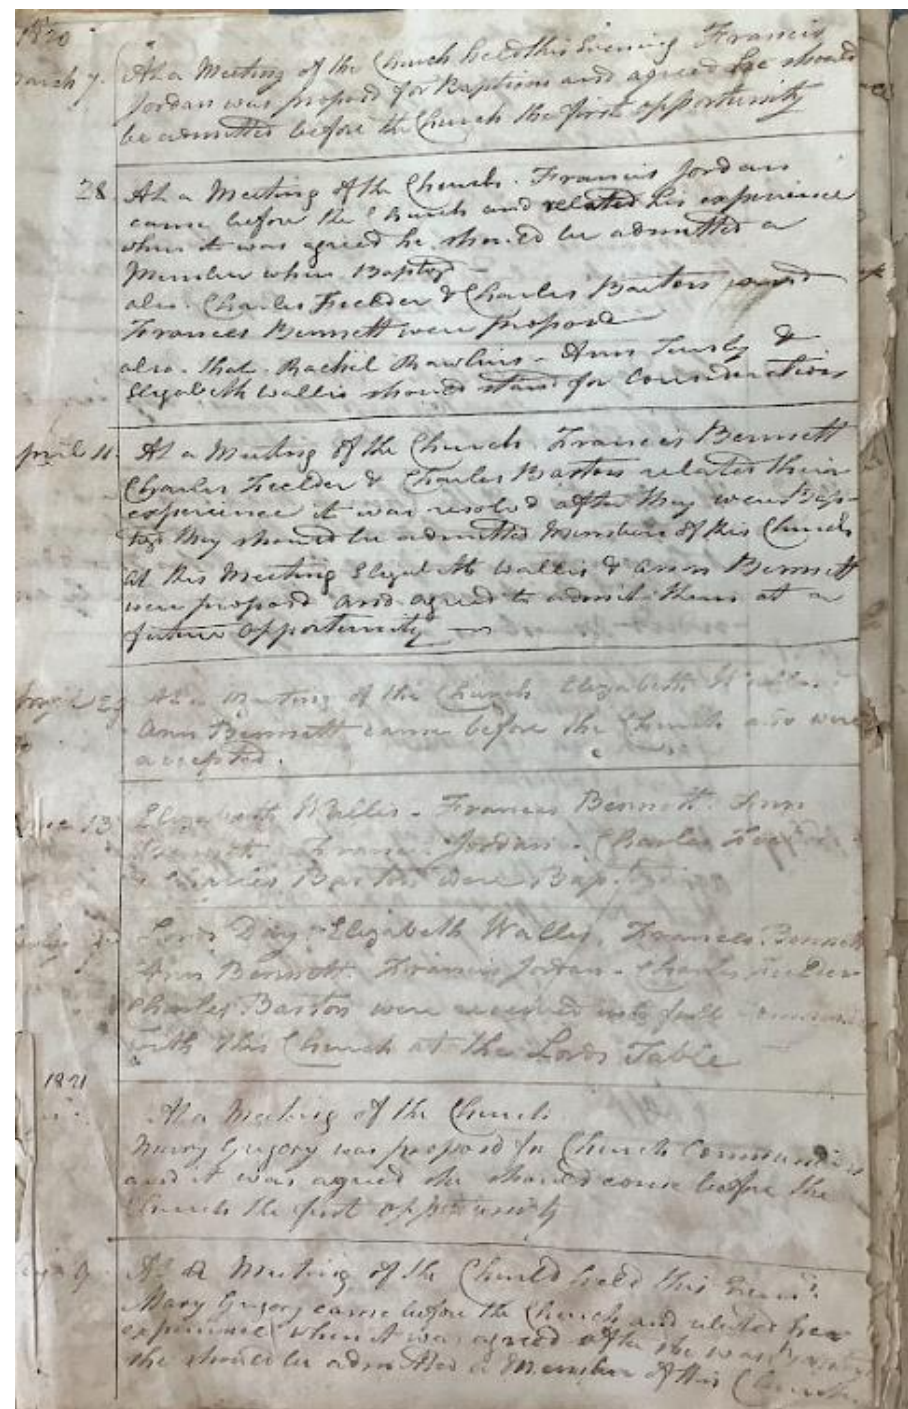 1820
March 7. At a Meeting of the Church held this Evening Francis
Jordan was proposd for Baptism and agreed he should
be admitted before the Church the first opportunity
28 At a Meeting of the Church. Francis Jordan
came before the Church and related his experience
when it was agreed he should be admitted a
Member when Baptizd
also. Charles Feelder & Charles Barton and
Frances Bennett were proposd
also. that. Rachel Rawlins - Ann &
Elizabeth Wallis should stand for Consideration
April 11. At a Meeting of the Church. Francis Bennett
Charles Feelder & Charles Barton related their
experience it was resolvd after they were Bap-
tizd they should be admitted Members of this Church
at this Meeting Elizabeth Wallis & Ann Bennett
were proposd and agreed to admit them at a
future opportunity
At a Meeting of the Church Elizabeth Wallis
Ann Bennett came before the Church and were
accepted.
13 Elizabeth Wallis - Frances Bennett. Ann
Bennett Francis Jordan - Charles
Charles Barton were
Lords Day. Elizabeth Wallis. Frances Bennett
Ann Bennett. Francis Jordan - Charles Feelder
Charles Barton were received into full
with this Church at the Lords Table
1821
At a Meeting of the Church
Mary Gregory was proposd for Church Communion
and it was agreed she should come before the
Church the first oppertunity
9 At a Meeting of the Church held this
Mary Gregory came before the Church and related her
experience when it was agreed after she was
she should be admitted a Member of this Church.